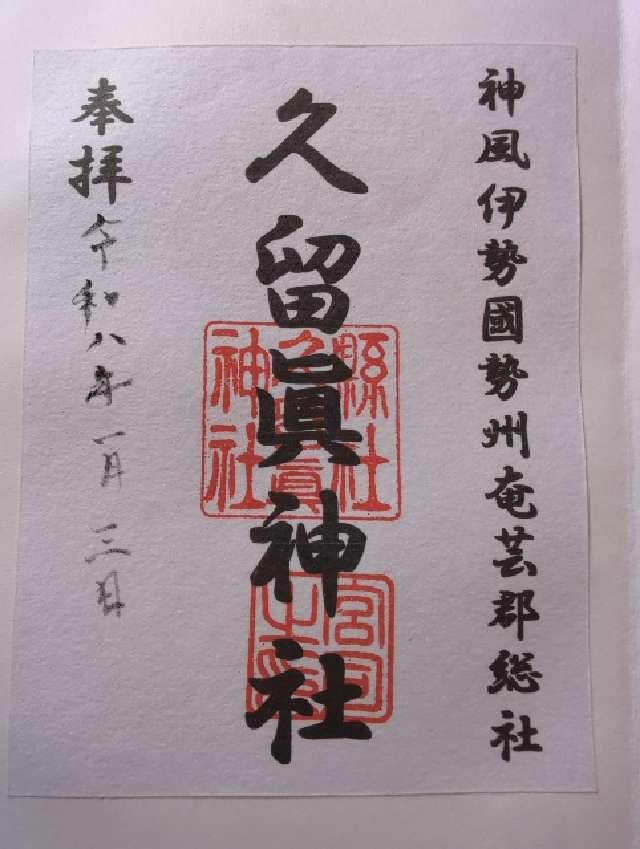 神風伊勢國勢州奄芸郡総社
久留眞神社
奉拝 令和八年一月三日
縣社久留真神社
宮司之印